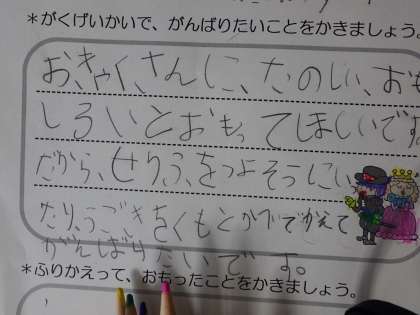 ＊がくげいかいで、がんばりたいことをかきましょう。
お、きゃく、さんに、たのしい、おも
しろいとおもってほしいです
だから、せりふ、をつよそうにい
たり、うごきをくもとかでかえて
がんばりたいです。
＊ふりかえって、おもったことをかきましょう。